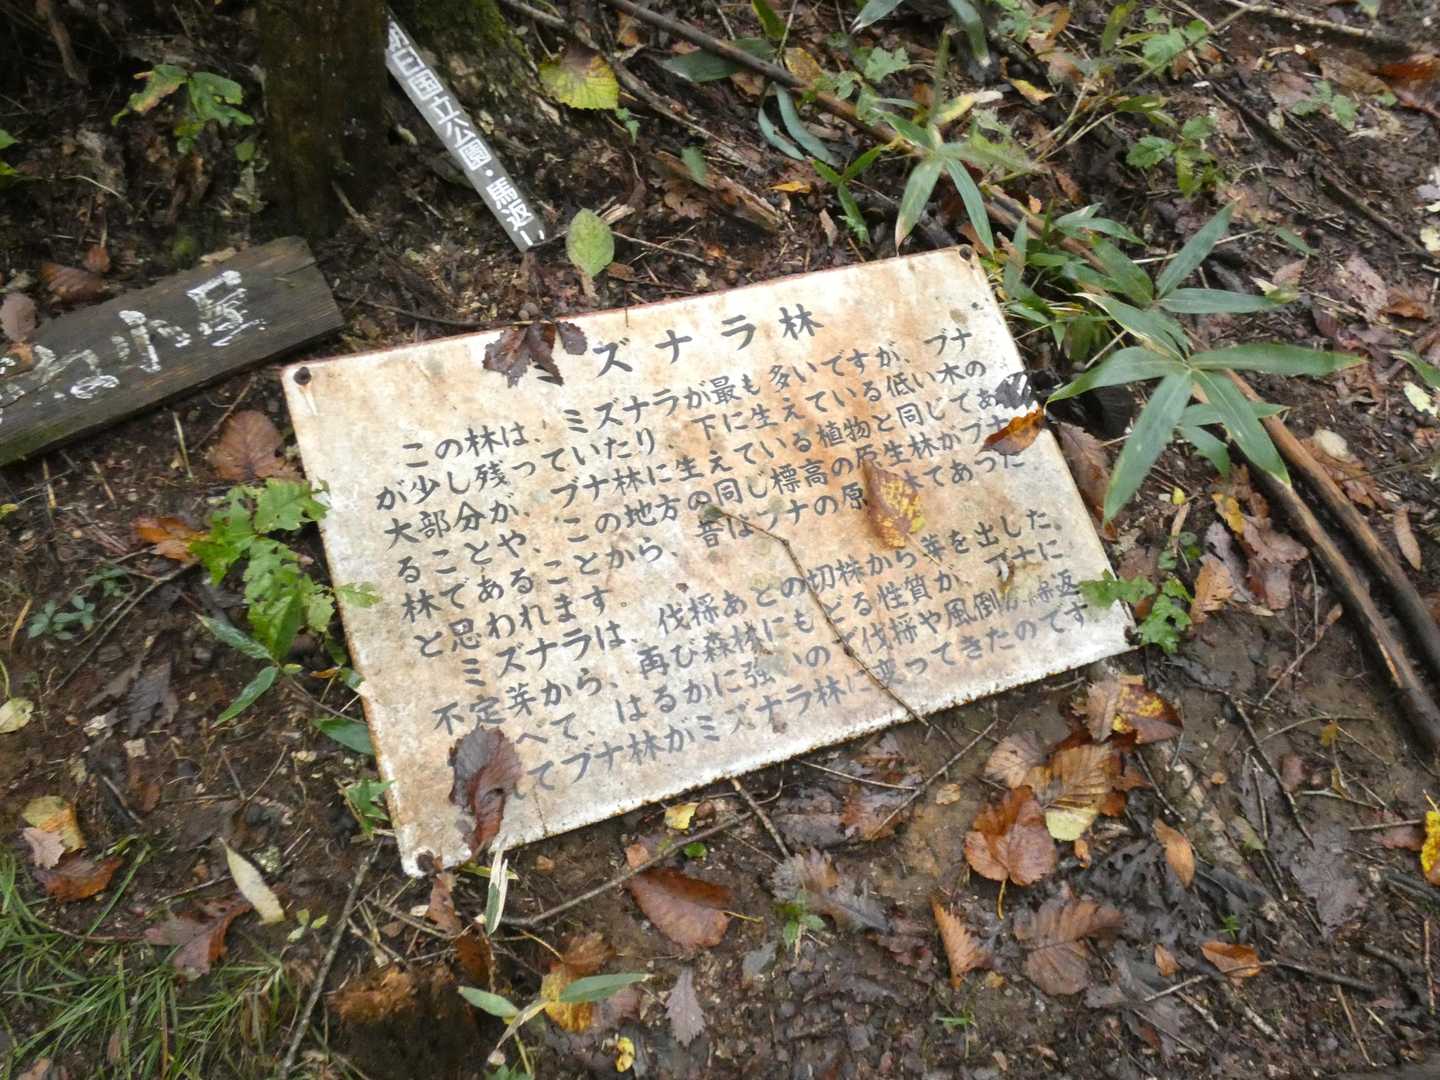 国立公園・馬返し
小屋
ミズナラ林
この林は、ミズナラが最も多いですが、ブナ
が少し残っていたり、下に生えている低い木の
大部分が、ブナ林に生えている植物と同じであ
ること や、この地方の同じ標高の原生林がブナ
林であることから、昔はブナの原 木であった
と思われます。
ミズナラは、伐採あとの切株から芽を出した、
不定芽から、再び森林にもどる性質が、ブナに
べて、はるかに強いので伐採や風倒 返
してブナ林がミズナラ林に変ってきたのです